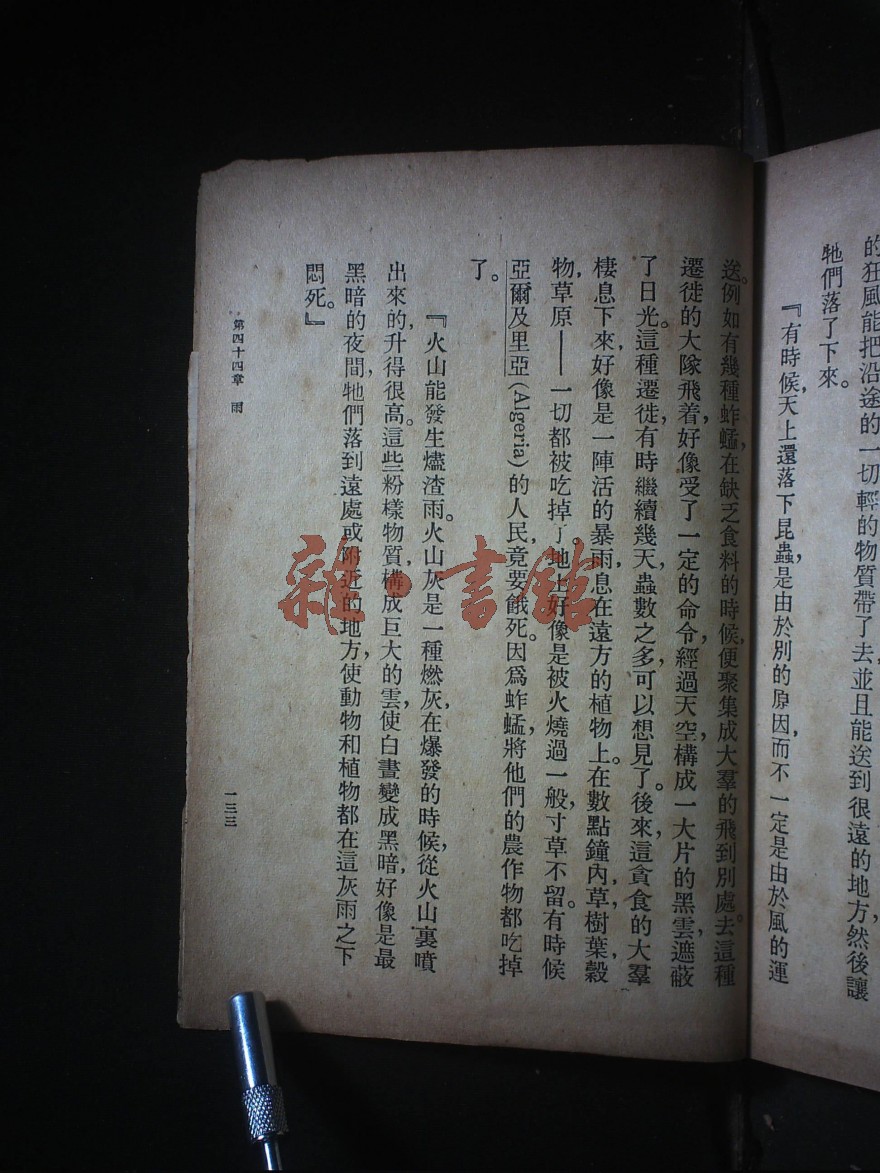 的狂風能把沿途的一切輕的物質帶了去，並且能送到很遠的地方然後讓
牠們落了下來。
『有時候，天上還落下昆蟲，是由於別的原因，而不一定是由於風的運
送。例如有幾種蚱蜢，在缺乏食料的時候，便聚集成大羣的飛到別處去。這種
遷徙的大隊飛着，好像受了一定的命令，經過天空，構成一大片的黑雲，遮蔽
了日光。這種遷徙有時繼續幾天，蟲數之多，可以想見了。後來，這貪食的大羣
棲息下來，好像是一陣活的暴雨，息在遠方的植物上。在數點鐘內，草，樹葉，穀
物，草原——一切都被吃掉了。地上好像是被火燒過一般，寸草不留。有時候
亞爾及里亞(Algeria)的人民，竟要餓死。因爲蚱蜢將他們的農作物都吃掉
了。
『火山能發生燼渣雨。火山灰是一種燃灰，在爆發的時候，從火山裏噴
出來的，升得很高。這些粉樣物質，構成巨大的雲，使白晝變成黑暗，好像是最
黑暗的夜間，牠們落到遠處或附近的地方，使動物和植物都在這灰雨之下
悶死。』
第四十四章 雨
一三三
雜·書館